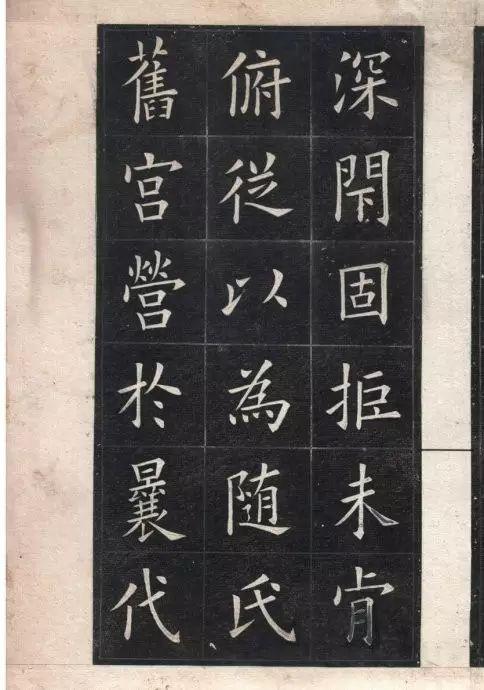 深閇固拒未肯
俯従以為随氏
舊宮營於曩代